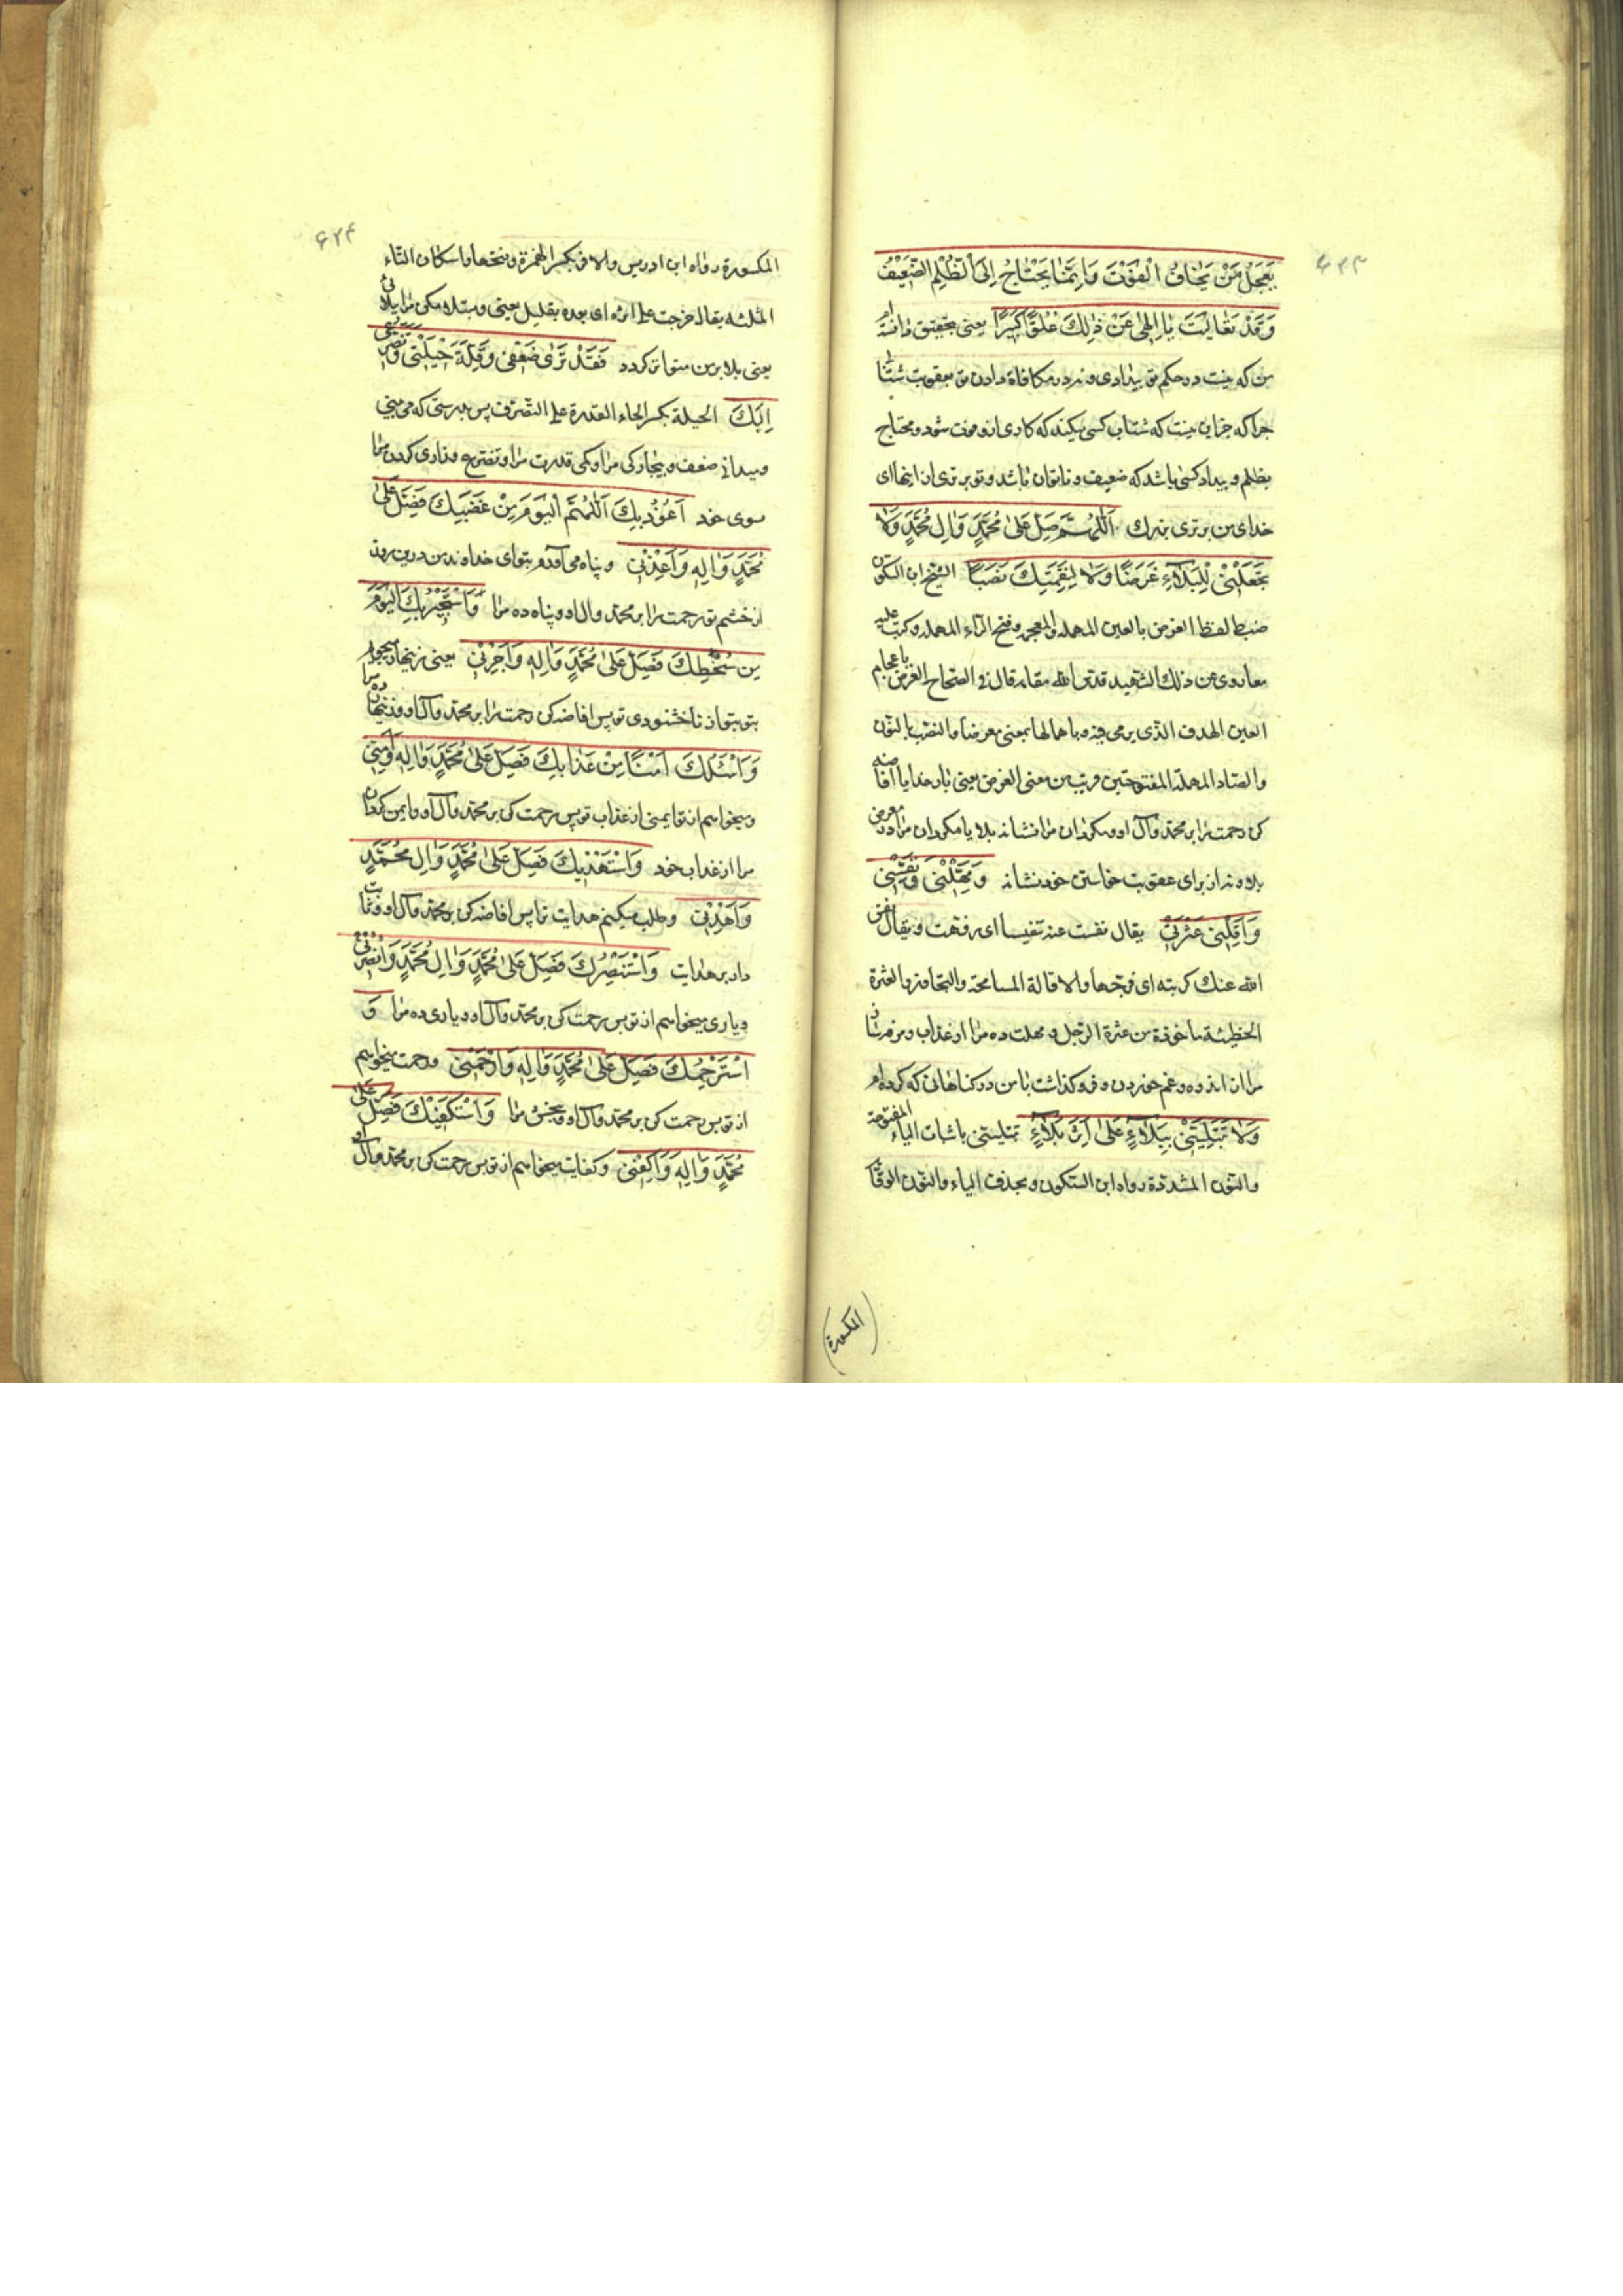 ۶۲۳
يَعْجَلُ مَنْ يَخٰافُ الْفَوْتَ وَاِنَّمٰا يَحْتٰاجُ اِلَى الظُّلْمِ الضَّعِيْفُ
وَقَدْ تَعٰالَيْتَ يٰا اِلٰهِى عَنْ ذٰلِكَ عُلُوًّا كَبِيْرًا يعنى بتحقيق دانسته‌ام
من كه نيست در حكم تو بيدادى و نه در مكافاة دادن تو بعقوبت شتاب
چرا كه جز اين نيست كه شتاب كسى ميكند كه كارى ازو فوت شود و محتاج
بظلم و بيداد كسى باشد كه ضعيف و ناتوان باشد و تو برترى از اينها اى
خداى من برترى بزرك اَللّٰهُمَّ صَلِّ عَلىٰ مُحَمَّدٍ وَاٰلِ مُحَمَّدٍ وَلاٰ
تَجْعَلْنِىْ لِلْبَلاٰءِ غَرَضًا وَلاٰ لِنِقْمَتِكَ نَصَبًا الشيخ ابن السكون
ضبط لفظ الغرض بالعين المهملة والمعجمه وفتح الراء المهمله وكتب عليه
معا روى عن ذلك الشهيد قدس الله مقامه قال فى الصحاح الغرض باعجام
العين الهدف الذى يرمى فيه وباهمالها بمعنى معرضا والنصب بالنون
والصاد المهملة المفتوحتين قريب من معنى الغرض يعنى بار خدايا افاضه
كن رحمت را بر محمد و آل او و مكردان مرا نشانه بلا يا مكردان مرا در معرض
بلا و نه از براى عقوبت خاستن خود نشانه وَمَهِّلْنِىْ وَنَفِّسْنِىْ
وَاَقِلْنِى عَثْرَتِى يقال نفست عنه تنفيسا اى رفهت و يقال نفس
الله عنك كربته اى فرجها والاقالة المسامحة والتجاوز والعثرة
الخطيئة مأخوذة من عثرة الرجل و مهلت ده مرا از عذاب و
مرا از اندوه و غم خوردن و فرو كذاشت با من در كناهانى كه كرده‌ام
وَلاٰ تَبْتَلِيَنِّىْ بِبَلاٰءٍ عَلىٰ اَثَرِ بَلاٰءٍ تبتلينى باثبات الياء المفتوحة
والنون المشددة رواه ابن السكون وبحذف الياء والنون الوقاية
(المكسورة)
۶۲۴
المكسورة رواه ابن ادريس والاثر بكسر الهمزة وفتحها واسكان الثاء
المثلثه يقال خرجت على اثره اى بعده بقليل يعنى و مبتلا مكن مرا ببلائى
يعنى بلا بر من متواتر كردد فَقَدْ تَرٰى ضَعْفِى وَقِلَّةَ حِيْلَتِى وَتَضَرُّعِى
اِلَيْكَ الحيلة بكسر الحاء القدرة على التصرف پس بدرستى كه مى‌بينى
و ميدانى ضعف و بيچاركى مرا و كمى قدرت مرا و تضرع و زارى كردن مرا
سوى خود اَعُوْذُ بِكَ اَللّٰهُمَّ الْيَوْمَ مِنْ غَضَبِكَ فَصَلِّ عَلىٰ
مُحَمَّدٍ وَاٰلِهِ وَاَعِذْنِى و پناه مى‌آورم بتو اى خداوند من درين روز
از خشم تو رحمت را بر محمد و آل او و پناه ده مرا وَاَسْتَجِيْرُ بِكَ الْيَوْمَ
مِنْ سَخَطِكَ فَصَلِّ عَلىٰ مُحَمَّدٍ وَاٰلِهِ وَاَجِرْنِى يعنى زينهار ميجويم
بتو از ناخشنودى تو پس افاضه كن رحمت را بر محمد و آل او و زينهار ده مرا
وَاَسْئَلُكَ اَمْنًا مِنْ عَذٰابِكَ فَصَلِّ عَلىٰ مُحَمَّدٍ وَاٰلِهِ وَاٰمِنِّى
و ميخواهم از تو ايمنى از عذاب تو پس رحمت كن بر محمد و آل او و ايمن كردان
مرا از عذاب خود وَاَسْتَهْدِيكَ فَصَلِّ عَلىٰ مُحَمَّدٍ وَاٰلِ مُحَمَّدٍ
وَاهْدِنِى و طلب ميكنم هدايت ترا پس افاضه كن بر محمد و آل او و ثبات
دار بر هدايت وَاَسْتَنْصِرُكَ فَصَلِّ عَلىٰ مُحَمَّدٍ وَاٰلِ مُحَمَّدٍ وَانْصُرْنِى
و يارى ميخواهم از تو پس رحمت كن بر محمد و آل او و يارى ده مرا وَ
اَسْتَرْحِمُكَ فَصَلِّ عَلىٰ مُحَمَّدٍ وَاٰلِهِ وَارْحَمْنِى و رحمت ميخواهم
از تو پس رحمت كن بر محمد و آل او و ببخش مرا وَاَسْتَكْفِيْكَ فَصَلِّ عَلىٰ
مُحَمَّدٍ وَاٰلِهِ وَاكْفِنِى و كفايت ميخواهم از تو پس رحمت كن بر محمد و آل او